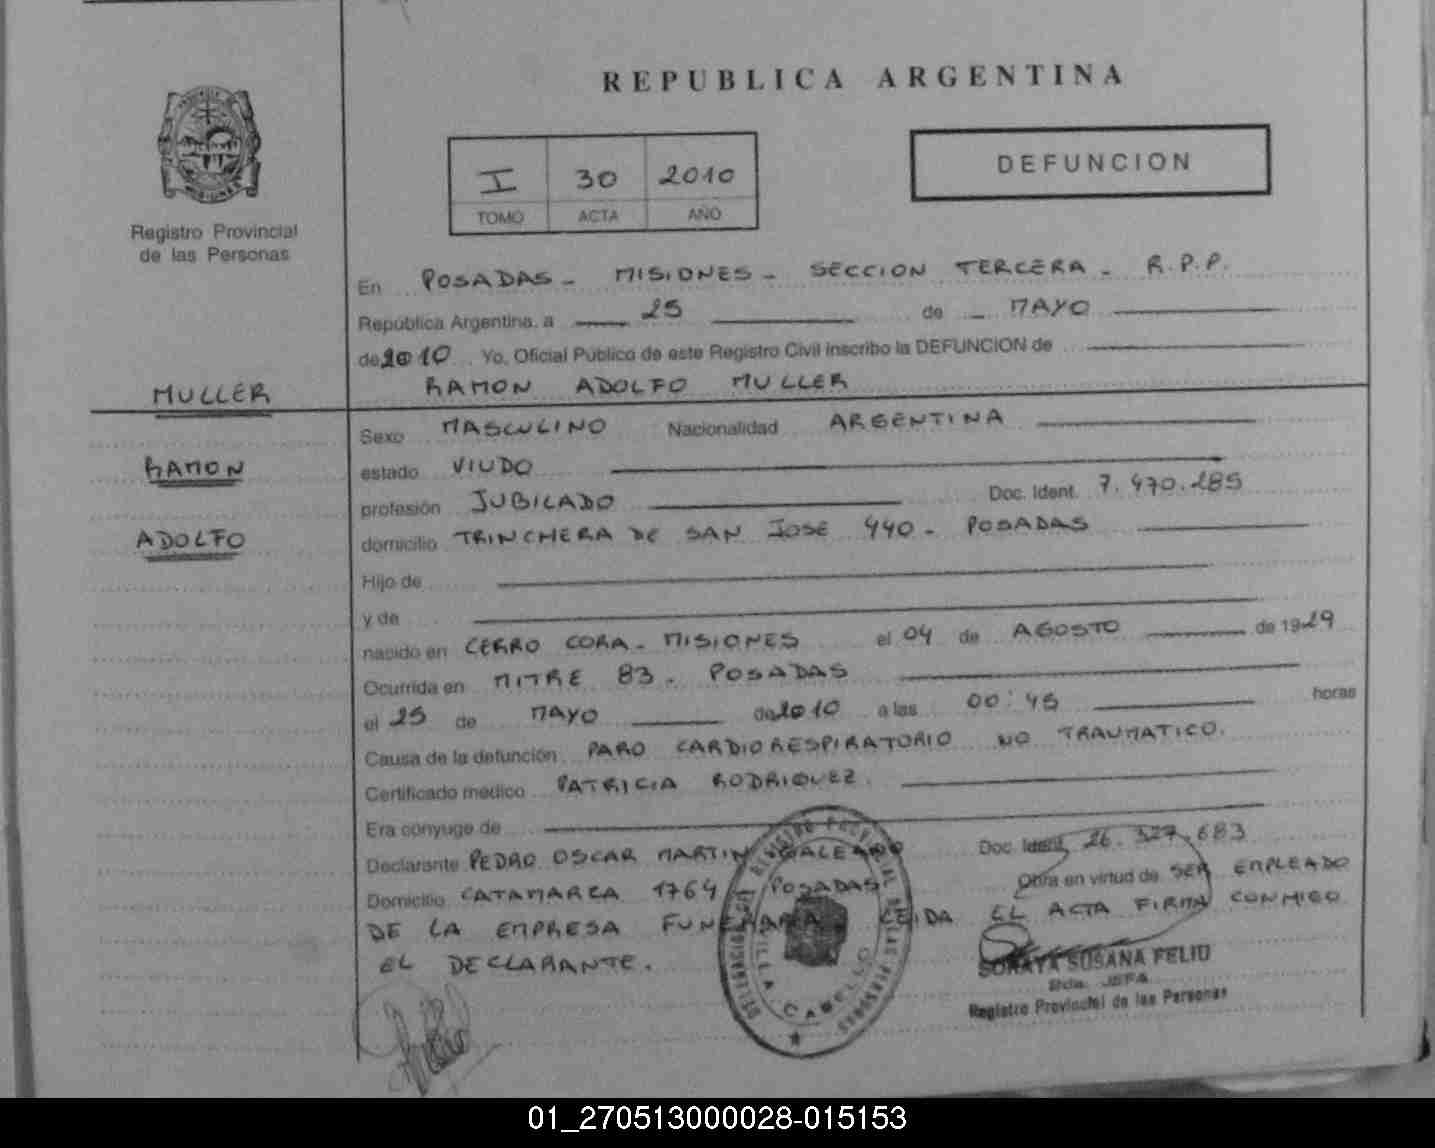 REPUBLICA ARGENTINA
I 30 2010
TOMO ACTA AÑO
DEFUNCION
Registro Provincial
de las Personas
MULLER
RAMON
ADOLFO
En POSADAS - MISIONES - SECCION TERCERA - R.P.P.
República Argentina, a 25 de MAYO
de 2010 Yo, Oficial Público de este Registro Civil inscribo la DEFUNCION de
RAMON ADOLFO MULLER
Sexo MASCULINO Nacionalidad ARGENTINA
estado VIUDO
profesión JUBILADO Doc. Ident. 7.470.285
domicilio TRINCHERA DE SAN JOSE 440 - POSADAS
Hijo de
y de
nacido en CERRO CORA - MISIONES el 04 de AGOSTO de 1929
Ocurrida en MITRE 83 - POSADAS
el 25 de MAYO de 2010 a las 00:45 horas
Causa de la defunción PARO CARDIORESPIRATORIO NO TRAUMATICO.
Certificado médico PATRICIA RODRIGUEZ.
Era cónyuge de
Declarante PEDRO OSCAR MARTIN GALEANO Doc. Ident. 26.327.683
Domicilio CATAMARCA 1764 POSADAS Obra en virtud de SER EMPLEADO
DE LA EMPRESA FUNERARIA LEIDA EL ACTA FIRMA CONMIGO
EL DECLARANTE.
DELEGACION REGISTRO PROVINCIAL DE LAS PERSONAS
VILLA CABELLO
SORAYA SUSANA FELIU
JEFA
Registro Provincial de las Personas
01_270513000028-015153